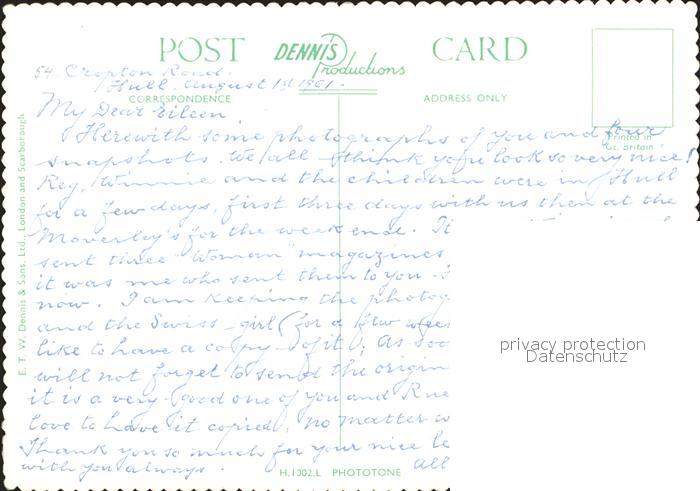 POST DENNIS Productions CARD
54. Cropton Road.
Hull. August 1st 1961.
CORRESPONDENCE
ADDRESS ONLY
My Dear Eileen
Printed in
Gt. Britain
Herewith some photographs of you and four
snapshots. We all think you look so very nice!
Reg, Winnie and the children were in Hull
for a few days, first three days with us then at the
Moverley's for the week end. It
sent three "Woman" magazines
it was me who sent them to you
now. I am keeping the photog
and the Swiss girl (for a few wees
like to have a copy of it). As soo
will not forget to send the origin
it is a very good one of you and
love to have it copied, no matter w
Thank you so much for your nice le
with you always. All
H.1302.L PHOTOTONE
E. T. W. Dennis & Sons, Ltd., London and Scarborough
privacy protection
Datenschutz